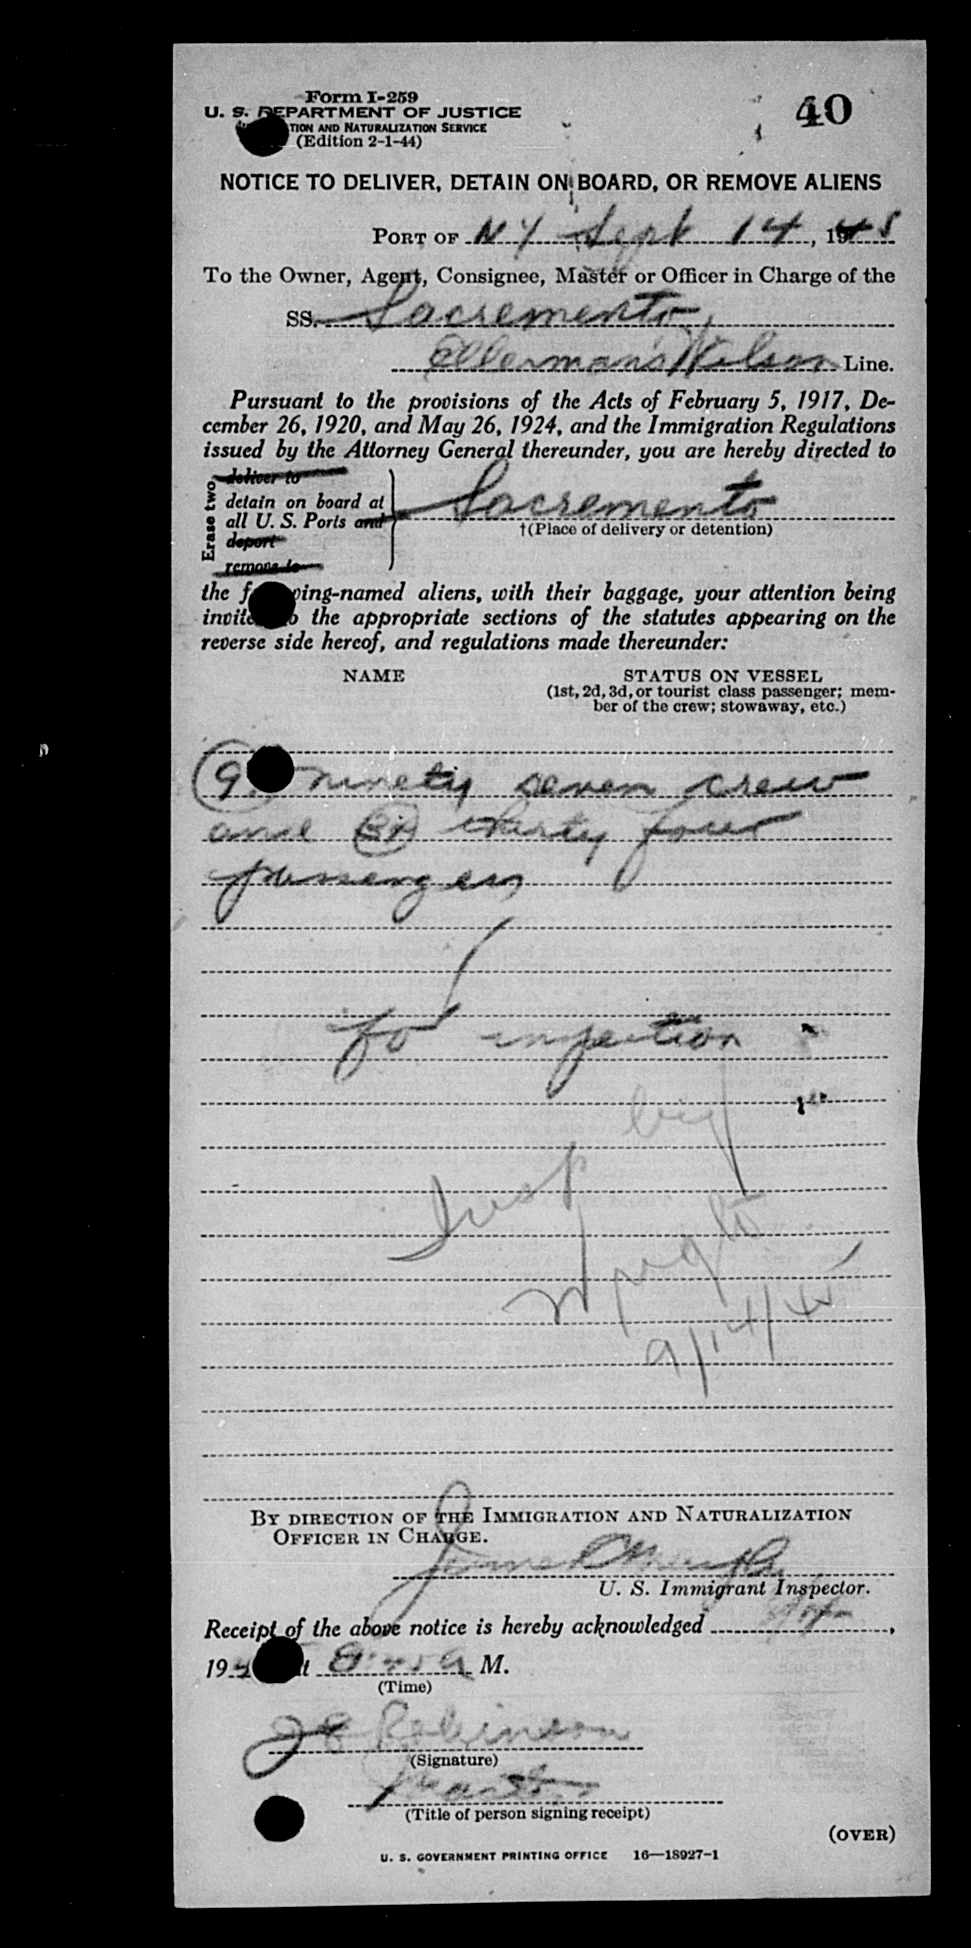 Form I-259
40
U. S. DEPARTMENT OF JUSTICE
TION AND NATURALIZATION SERVICE
(Edition 2-1-44)
NOTICE TO DELIVER, DETAIN ON BOARD, OR REMOVE ALIENS
PORT OF N Y Sept 14, 1945
To the Owner, Agent, Consignee, Master or Officer in Charge of the
SS. Sacremento
Ellerman's Wilson Line.
Pursuant to the provisions of the Acts of February 5, 1917, De-
cember 26, 1920, and May 26, 1924, and the Immigration Regulations
issued by the Attorney General thereunder, you are hereby directed to
Erase two
deliver to
detain on board at
all U. S. Ports and
deport
remove to
Sacremento
†(Place of delivery or detention)
the following-named aliens, with their baggage, your attention being
invited to the appropriate sections of the statutes appearing on the
reverse side hereof, and regulations made thereunder:
NAME
STATUS ON VESSEL
(1st, 2d, 3d, or tourist class passenger; mem-
ber of the crew; stowaway, etc.)
9 ninety seven crew
and thirty four
passengers
for inspection
Insp
9/14/45
BY DIRECTION OF THE IMMIGRATION AND NATURALIZATION
OFFICER IN CHARGE.
James
U. S. Immigrant Inspector.
Receipt of the above notice is hereby acknowledged 9/14,
194 at 8 A M.
(Time)
J E Robinson
(Signature)
Master
(Title of person signing receipt)
(OVER)
U. S. GOVERNMENT PRINTING OFFICE 16—18927-1